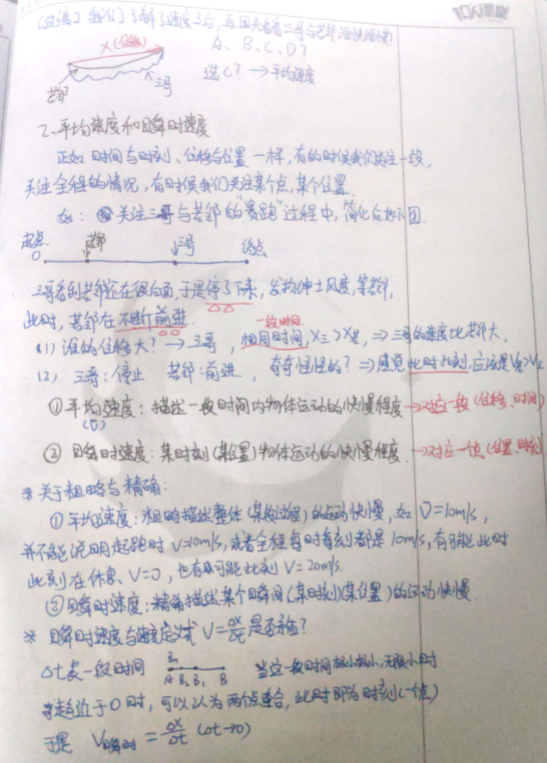 (过渡) 我们了解了速度之后,再回头看看三哥与若邻谁快谁慢?
X(位移)
A、B、C、D?
选C? → 平均速度
若邻
三哥
2、平均速度和瞬时速度
正如时间与时刻、位移与位置一样,有的时候我们关注一段,
关注全程的情况,有时候我们关注某个点,某个位置.
如: 关注三哥与若邻的"赛跑"过程中,简化
起点
若邻
三哥
终点
O
三哥看到若邻还在很后面,于是停了下来,发扬绅士风度,等若邻,
此时,若邻在不断前进.
一段时间
(1) 谁的位移大? → 三哥,相同时间,X三>X若 ⇒ 三哥的速度比若邻大,
(2) 三哥:停止 若邻:前进,有奇怪怪的? ⇒ 感觉此时此刻,应该是V若>V三
① 平均速度:描述一段时间内物体运动的快慢程度 → 对应一段(位移、时间)
② 瞬时速度:某时刻(某位置)物体运动的快慢程度. → 对应一点(位置、时刻)
* 关于粗略与精确:
① 平均速度:粗略描述整体(某段过程)的运动快慢,如 V̄=10m/s,
并不能说明起跑时 V=10m/s,或者全程每时每刻都是10m/s,有可能此时
此刻在休息、V=0,也有可能此刻 V=20m/s.
② 瞬时速度:精确描述某个瞬间(某时刻)(某位置)的运动快慢.
* 瞬时速度与速度定义式 V=Δx/Δt 是否矛盾?
Δt表一段时间
Bn
A B₂ B₁ B
当这一段时间极小极小,无限小时
趋近于0时,可以认为两个点重合,此时即为时刻(一个点)
于是 V瞬时 = Δx/Δt (Δt→0)